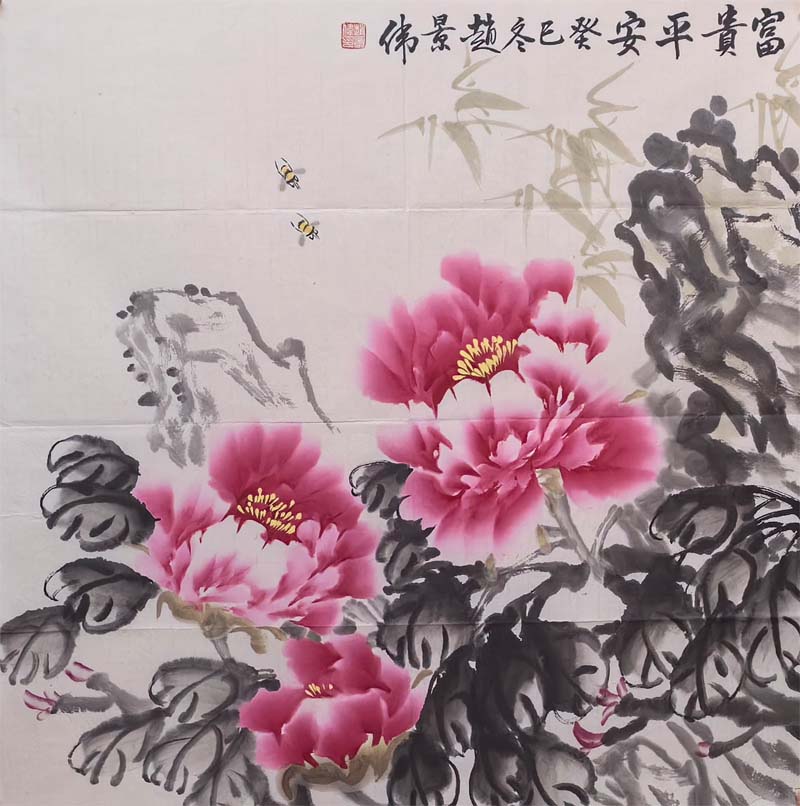 富貴平安癸巳冬趙景伟